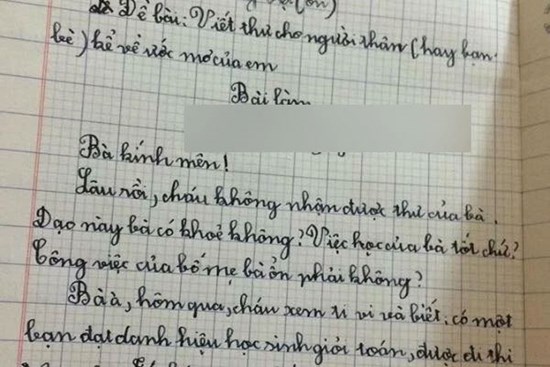 Đề bài: Viết thư cho người thân (hay bạn
bè) kể về ước mơ của em
Bài làm
Bà kính mến!
Lâu rồi, cháu không nhận được thư của bà.
Dạo này bà có khoẻ không? Việc học của bà tốt chứ?
Công việc của bố mẹ bà ổn phải không?
Bà à, hôm qua, cháu xem ti vi và biết. có một
bạn đạt danh hiệu học sinh giỏi toán, được đi thi